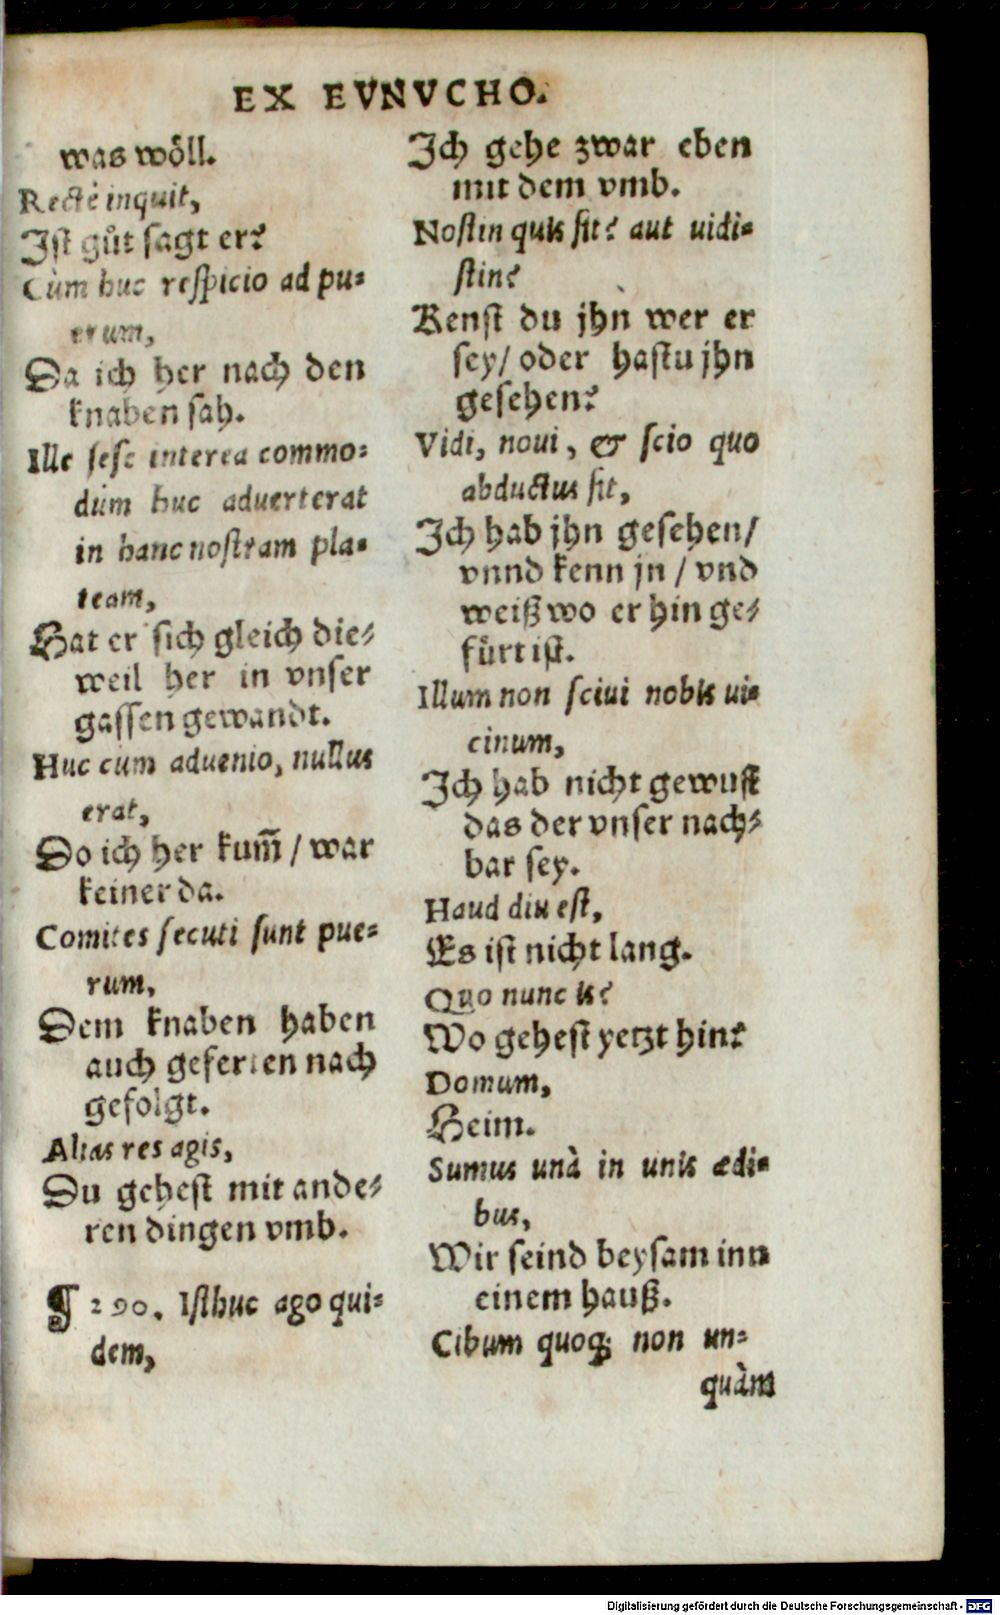 EX EVNVCHO.
was wöll.
Rectè inquit,
Jst gůt sagt er?
Cùm huc respicio ad pu-
erum,
Da ich her nach den
knaben sah.
Ille sese interea commo-
dùm huc aduerterat
in hanc nostram pla-
team,
Hat er sich gleich die-
weil her in vnser
gassen gewandt.
Huc cum aduenio, nullus
erat,
Do ich her kum̃ / war
keiner da.
Comites secuti sunt pue-
rum,
Dem knaben haben
auch geferten nach
gefolgt.
Alias res agis,
Du gehest mit ande-
ren dingen vmb.
¶ 290. Isthuc ago qui-
dem,
Jch gehe zwar eben
mit dem vmb.
Nostin quis sit? aut uidi-
stin?
Kenst du jhn wer er
sey/ oder hastu jhn
gesehen?
Vidi, noui, & scio quo
abductus sit,
Jch hab jhn gesehen/
vnnd kenn jn / vnd
weiß wo er hin ge-
fürt ist.
Illum non sciui nobis ui-
cinum,
Jch hab nicht gewust
das der vnser nach-
bar sey.
Haud diu est,
Es ist nicht lang.
Quo nunc is?
Wo gehest yetzt hin?
Domum,
Heim.
Sumus unà in unis ædi-
bus,
Wir seind beysam inn
einem hauß.
Cibum quoq; non un-
quàm
Digitalisierung gefördert durch die Deutsche Forschungsgemeinschaft - DFG